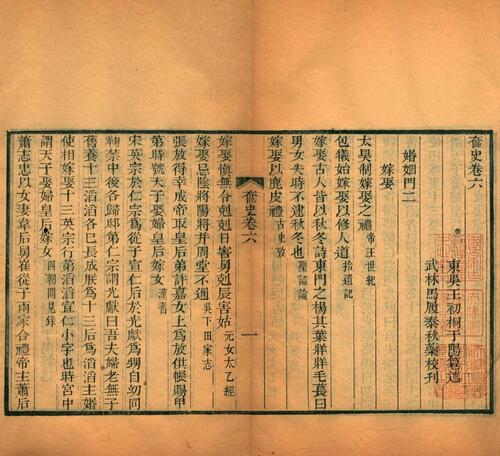 奩史卷六
東吳王初桐于陽纂述
武林馬履泰秋藥校刊
婚姻門二
嫁娶
太昊制嫁娶之禮帝王世紀
包犧始嫁娶以修人道拾遺記
嫁娶古人皆以秋冬詩東門之楊其葉牂牂毛萇曰
男女失時不逮秋冬也聖證論
嫁娶以鹿皮禮古史攷
奩史卷六
一
嫁娶慎無合剋剋日害男剋辰害姑元女太乙經
嫁娶忌陰將陽將并周堂不通吳下田家志
張放得幸成帝取皇后弟許嘉女上為放供帳賜甲
第時號天子娶婦皇后嫁女漢書
宋英宗於仁宗為從子宣仁后於光獻為甥自幼同
鞠禁中後各歸邸第仁宗謂光獻曰吾夫婦老無子
舊養十三滔滔各已長成朕為十三后為滔滔主婚
使相嫁娶十三英宗行第滔滔宣仁小字也時宮中
謂天子娶婦皇后嫁女四朝聞見錄
蕭志忠以女妻韋后舅崔從子兩家合禮帝主蕭后